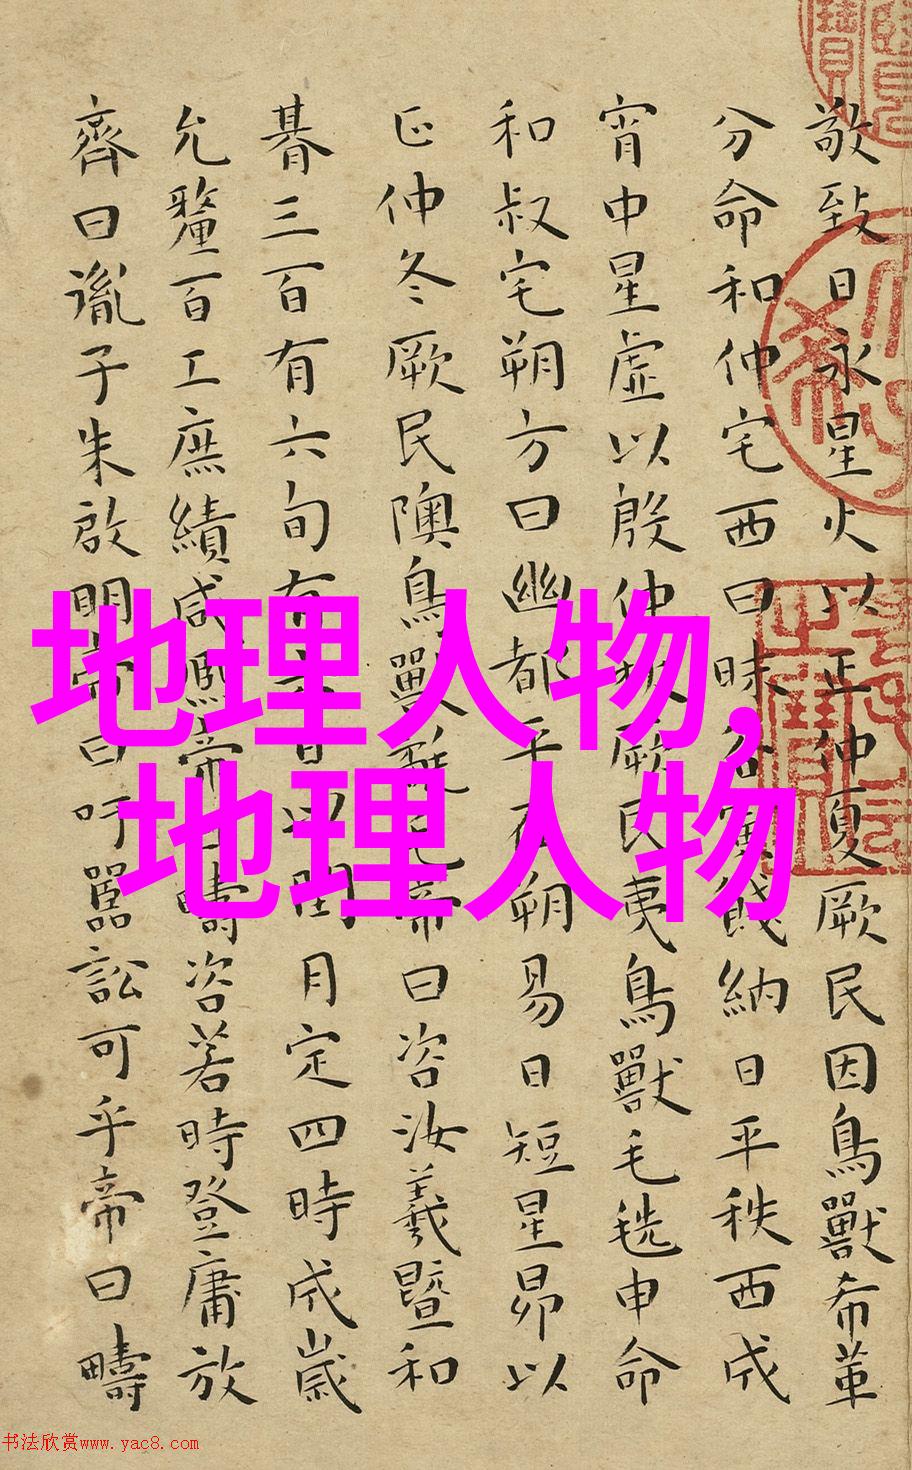 敬致日永星火以正仲夏厥民因鳥獸希革
分命和仲宅西曰昧谷寅餞納日平秩西成
宵中星虛以殷仲秋厥民夷鳥獸毛毨申命
和叔宅朔方曰幽都平在朔易日短星昴以
正仲冬厥民隩鳥獸氄毛帝曰咨汝羲暨和
朞三百有六旬有六日以閏月定四時成歲
允釐百工庶績咸熙帝曰疇咨若時登庸放
齊曰胤子朱啟明帝曰吁嚚訟可乎帝曰疇
地理人物,
地理人物
书法欣赏www.yac8.com